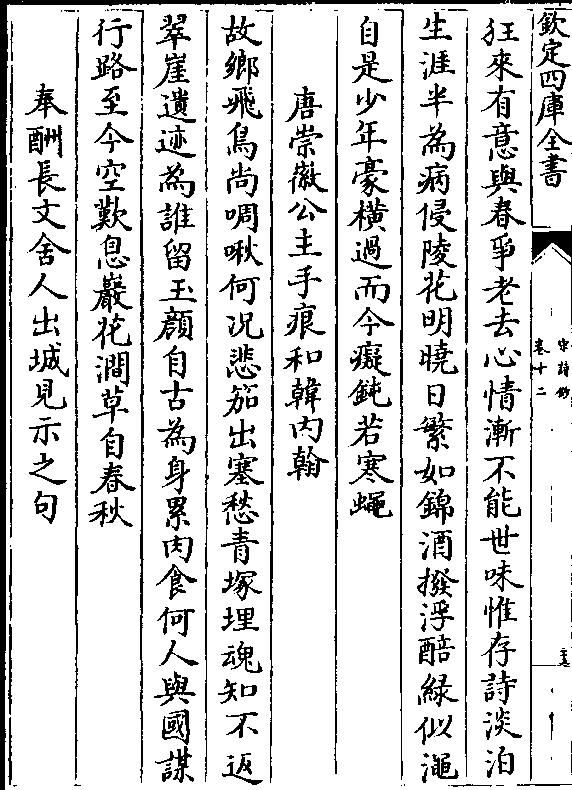 欽定四庫全書
宋詩鈔
卷十二
狂來有意與春爭老去心情漸不能世味惟存詩淡泊
生涯半為病侵陵花明曉日繁如錦酒撥浮醅綠似澠
自是少年豪橫過而今癡鈍若寒蠅
唐崇徽公主手痕和韓内翰
故鄉飛鳥尚啁啾何况悲笳出塞愁青塚埋魂知不返
翠崖遺迹為誰留玉顔自古為身累肉食何人與國謀
行路至今空歎息巖花澗草自春秋
奉酬長文舍人出城見示之句